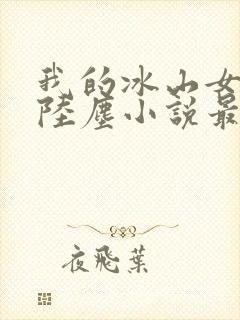 我的冰山女
陸塵小說最
夜飛葉